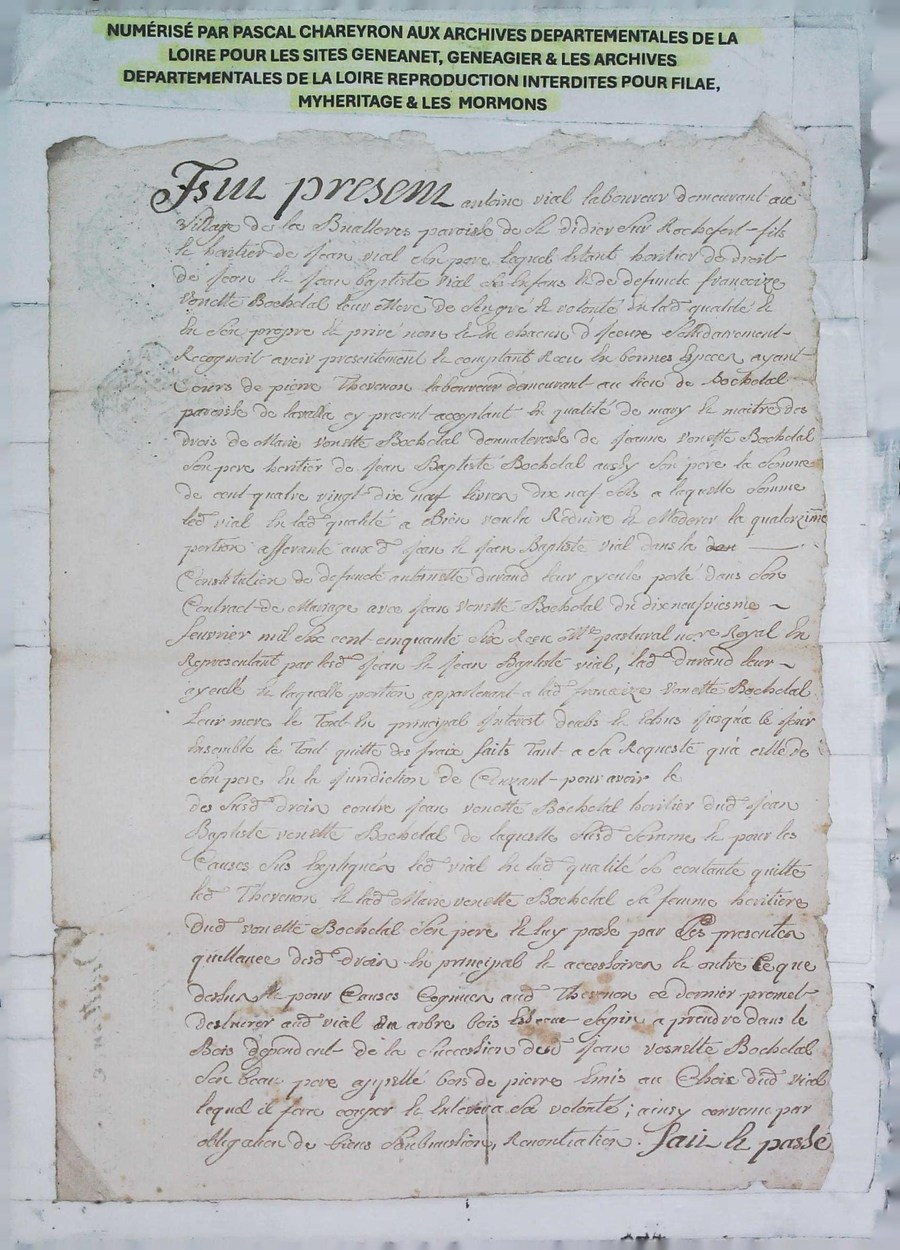 NUMÉRISÉ PAR PASCAL CHAREYRON AUX ARCHIVES DEPARTEMENTALES DE LA
LOIRE POUR LES SITES GENEANET, GENEAGIER & LES ARCHIVES
DEPARTEMENTALES DE LA LOIRE REPRODUCTION INTERDITES POUR FILAE,
MYHERITAGE & LES MORMONS
Fut present antoine vial laboureur demeurant au
village de la paroisse de St didier sur Rochefort fils
et heritier de Jean vial son pere lequel Estant heritier de droit
de Jean et Jean baptiste vial ses Enfans et de defuncte françoize
vonette Bochdal leur Mere de Son gré et volonté En lad qualité et
En Son propre et privé nom et En chacun d'Iceux Sollidairement
Recognoit avoir presentement et comptant Receu En bonnes Especes ayant
Cours de pierre Thevenon laboureur demeurant au lieu de Bochdal
paroisse de lavalla cy present acceptant En qualité de mary et maitre des
drois de Marie vonette Bochdal de Jeanne vonette Bochdal
Son pere heritier de Jean Baptiste Bochdal aussy Son pere la Somme
de cent quatre vingt dix neuf livres dix neuf Sols a laquelle Somme
led vial En lad qualité a Bien voulu Reduire et Moderer la quatorzime
portion afferante aux d Jean et Jean Baptiste vial dans la
Constitution de defuncte antoinette durand leur ayeule porté dans Son
Contract de Mariage avec Jean vonette Bochdal du dix neufviesme
feuvrier mil Six cent cinquante Six Receu Me pastural no.re Royal En
Representant par lesd Jean et Jean Baptiste vial, lad durand leur
ayeulle et laquelle portion appartenant a lad françoize vonette Bochdal
Leur mere le Tout En principal Interest deubs et Echus Jusqua ce Jour
Ensemble le Tout quitte des fraix faits Tant a Sa Requeste qu'a celle de
Son pere En la Juridiction de pour avoir le
des Susd droix contre Jean vonette Bochdal heritier dud Jean
Baptiste vonette Bochdal de laquelle Susd Somme et pour les
Causes Sus Expliquées led vial En lad qualité Se contante quitte
led Thevenon et lad Marie vonette Bochdal Sa femme heritiere
dud vonette Bochdal Son pere et luy passe par Ces presentes
quittance desd droix En principal et accessoires et outre Ce que
dessus Et pour Causes Cogneues aud Thevenon ce dernier promet
deslivrer aud vial un arbre bois Sapin a prendre dans le
Bois dependent de la Succession dud Jean vonette Bochdal
Son beau pere appellé bois de pierre au Choix dud vial
lequel il fera couper et Enlevera Sa volonté; ainsy convenu par
obligation de biens Soubmission, Renontiation. Fait et passé